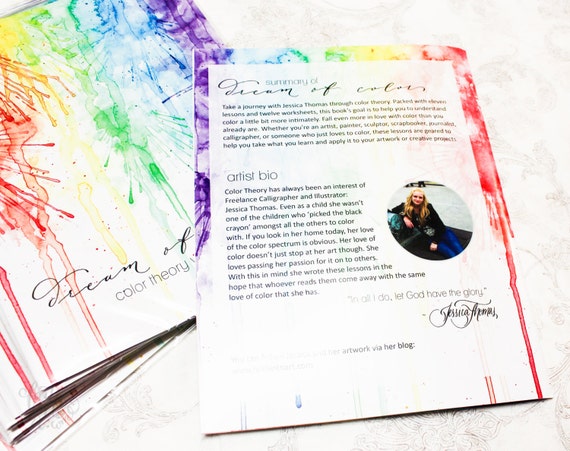 summary of
dream of color
Take a journey with Jessica Thomas through color theory. Packed with eleven
lessons and twelve worksheets, this book's goal is to help you to understand
color a little bit more intimately. Fall even more in love with color than you
already are. Whether you're an artist, painter, sculptor, scrapbooker, journalist,
calligrapher, or someone who just loves to color, these lessons are geared to
help you take what you learn and apply it to your artwork or creative projects.
artist bio
Color Theory has always been an interest of
Freelance Calligrapher and Illustrator:
Jessica Thomas. Even as a child she wasn't
one of the children who 'picked the black
crayon' amongst all the others to color
with. If you look in her home today, her love
of the color spectrum is obvious. Her love of
color doesn't just stop at her art though. She
loves passing her passion for it on to others.
With this in mind she wrote these lessons in the
hope that whoever reads them come away with the same
love of color that she has.
"In all I do, let God have the glory."
Jessica Thomas,
her artwork via her blog:
dream of
color theory